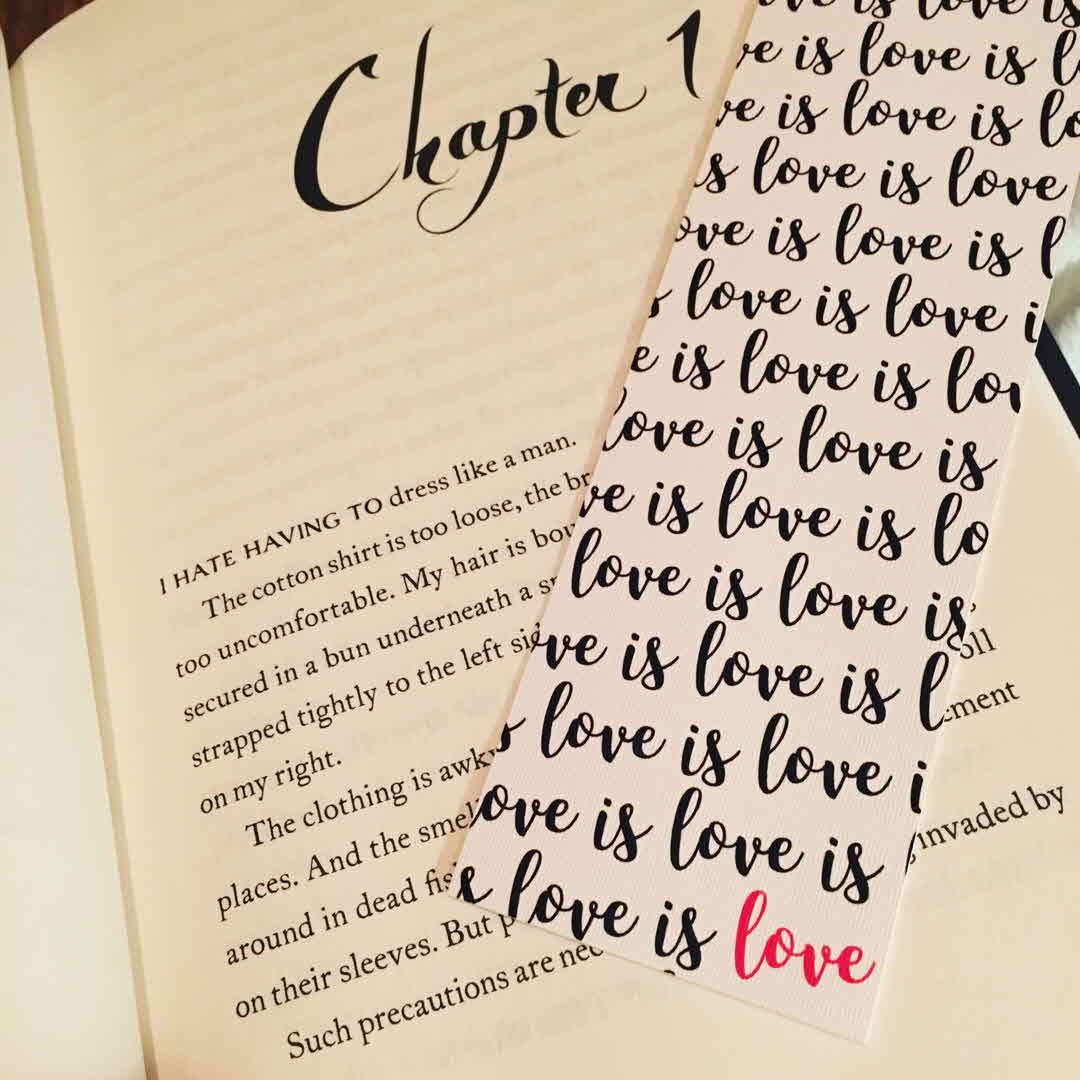 Chapter 1
I HATE HAVING TO dress like a man.
The cotton shirt is too loose, the
too uncomfortable. My hair is
secured in a bun underneath a
strapped tightly to the left
on my right.
The clothing is
places. And the
around in dead
on their sleeves. But
Such precautions are
invaded by
is love is
is love is
is love is
love is love
is love is
love is love
is love is
love is love is
is love is
love is love is
is love is
love is love
is love is
love is love